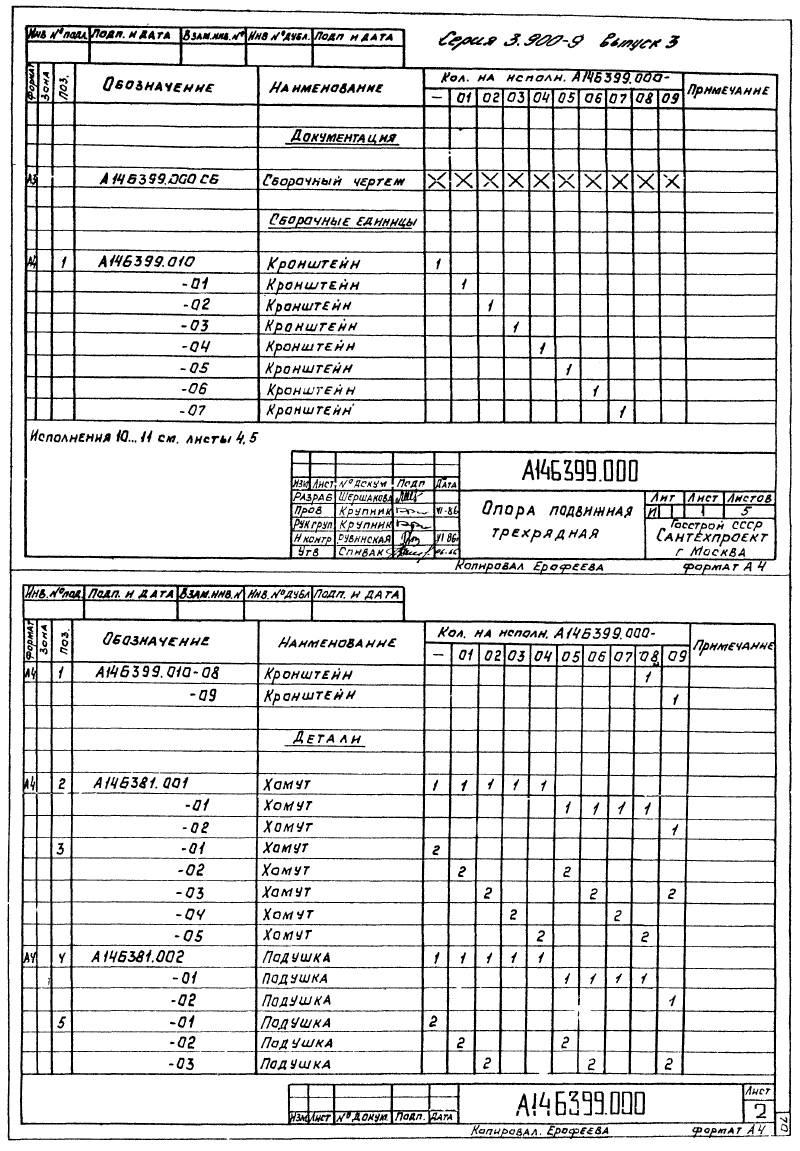 Инв.№подл. Подп. и дата Взам.инв.№ Инв.№дубл. Подп. и дата
Серия 3.900-9 Выпуск 3
Формат Зона Поз. Обозначение Наименование Кол. на исполн. А14Б399.000- Примечание
— 01 02 03 04 05 06 07 08 09
Документация
А3 А14Б399.000 СБ Сборочный чертеж X X X X X X X X X X
Сборочные единицы
А4 1 А14Б399.010 Кронштейн 1
-01 Кронштейн 1
-02 Кронштейн 1
-03 Кронштейн 1
-04 Кронштейн 1
-05 Кронштейн 1
-06 Кронштейн 1
-07 Кронштейн 1
Исполнения 10...11 см. листы 4,5
А14Б399.000
Изм Лист №докум Подп Дата
Разраб Шершакова
Пров Крупник VI-86
Рук.груп Крупник
Н контр Рувинская VI 86
Утв Спивак
Опора подвижная трехрядная
Лит Лист Листов
И 1 5
Госстрой СССР
Сантехпроект
г Москва
Копировал Ерофеева формат А4
Инв.№под. Подп. и дата Взам.инв.№ Инв.№дубл Подп. и дата
Формат Зона Поз. Обозначение Наименование Кол. на исполн. А14Б399.000- Примечание
— 01 02 03 04 05 06 07 08 09
А4 1 А14Б399.010-08 Кронштейн 1
-09 Кронштейн 1
Детали
А4 2 А14Б381.001 Хомут 1 1 1 1 1
-01 Хомут 1 1 1 1
-02 Хомут 1
3 -01 Хомут 2
-02 Хомут 2 2
-03 Хомут 2 2 2
-04 Хомут 2 2
-05 Хомут 2 2
А4 4 А14Б381.002 Подушка 1 1 1 1 1
-01 Подушка 1 1 1 1
-02 Подушка 1
5 -01 Подушка 2
-02 Подушка 2 2
-03 Подушка 2 2 2
Изм Лист №докум. Подп. Дата
А14Б399.000
Лист
2
Копировал. Ерофеева формат А4
70